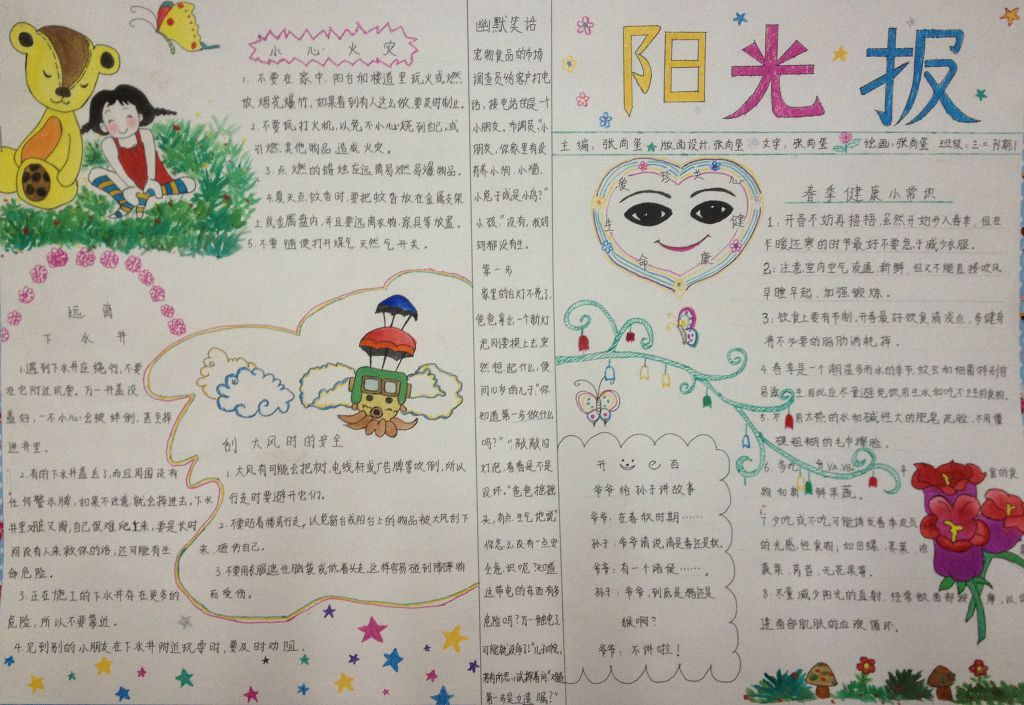 阳光报
主编：张尚玺 版面设计：张尚玺 文字：张尚玺 绘画：张尚玺 班级：三二
小心火灾
1. 不要在家中、阳台和楼道里玩火或燃
放烟花爆竹，如果看到有人这么做，要及时制止。
2. 不要玩打火机，以免不小心烧到自己，或
引燃其他物品造成火灾。
3. 点燃的蜡烛应远离易燃易爆物品。
4. 夏天点蚊香时，要把蚊香放在金属支架
上或金属盘内，并且要远离衣物、家具等放置。
5. 不要随便打开煤气、天然气开关。
远离
下水井
1. 遇到下水井应绕行，不要
在它附近玩耍，万一井盖没
盖好，一不小心会被绊倒，甚至摔
进井里。
2. 有的下水井盖丢了，而且周围没有
任何警示牌，如果不注意就会掉进去。下水
井里又脏又滑，自己很难爬上来，要是长时
间没有人来救你的话，还可能有生
命危险。
3. 正在施工的下水井存在更多的
危险，所以不要靠近。
4. 见到别的小朋友在下水井附近玩耍时，要及时劝阻。
刮大风时的安全
1. 大风有可能会把树、电线杆或广告牌等吹倒，所以
行走时要避开它们。
2. 不要贴着楼房行走，以免窗台或阳台上的物品被大风刮下
来，砸伤自己。
3. 不要用衣服遮住脑袋或低着头走，这样容易碰到障碍物
而受伤。
幽默笑话
宠物食品的市场
调查员给客户打电
话，接电话的是一个
小朋友。市调员："小
朋友，你家里有没
有养小狗、小猫、
小兔子或是小鸟？"
小孩："没有，我妈
妈都没有生。"
第一步
家里的台灯不亮了，
爸爸拿出一个新灯
泡刚要换上去，突
然想起什么，便
问10岁的儿子："你
知道第一步做什么
吗？""献献旧
灯泡，看看是不是
没坏。"爸爸摇摇
头，有点生气地说："
你怎么没有一点安
全意识呢？知道
这带电的东西有多
危险吗？万一触电了，
可能就没命了！"儿子
第一步是立遗嘱？"
爱 珍 关 心
生 健
命 康
开心e百
爷爷给孙子讲故事
爷爷：在春秋时期……
孙子：爷爷请说清是春还是秋。
爷爷：有一个诸侯……。
孙子：爷爷，到底是猪还是
猴啊？
爷爷：不讲啦！
春季健康小常识
1：开春不妨再捂捂，虽然开始步入春季，但在
乍暖还寒的时节最好不要急于减少衣服。
2：注意室内空气流通、新鲜，但又不能直接吹风，
早睡早起，加强锻炼。
3：饮食上要有节制，开春最好饮食清淡点，多健身
将不必要的脂肪消耗掉。
4 春季是一个潮湿多雨水的季节，蚊虫和细菌特别容
易滋生，因此应尽量避免饮用生水和吃不熟的食物。
5. 不用太热的水和碱性大的肥皂洗脸，不用僵
硬粗糙的毛巾擦脸。
6. 多吃 含VA、VB
物和新鲜果蔬。
7. 少吃或不吃可能诱发春季皮炎
的光感性食物，如田螺、苋菜、油
蔬菜、莴苣、无花果等。
8. 尽量减少阳光的直射，经常做面部按摩，以促
进面部肌肤的血液循环。